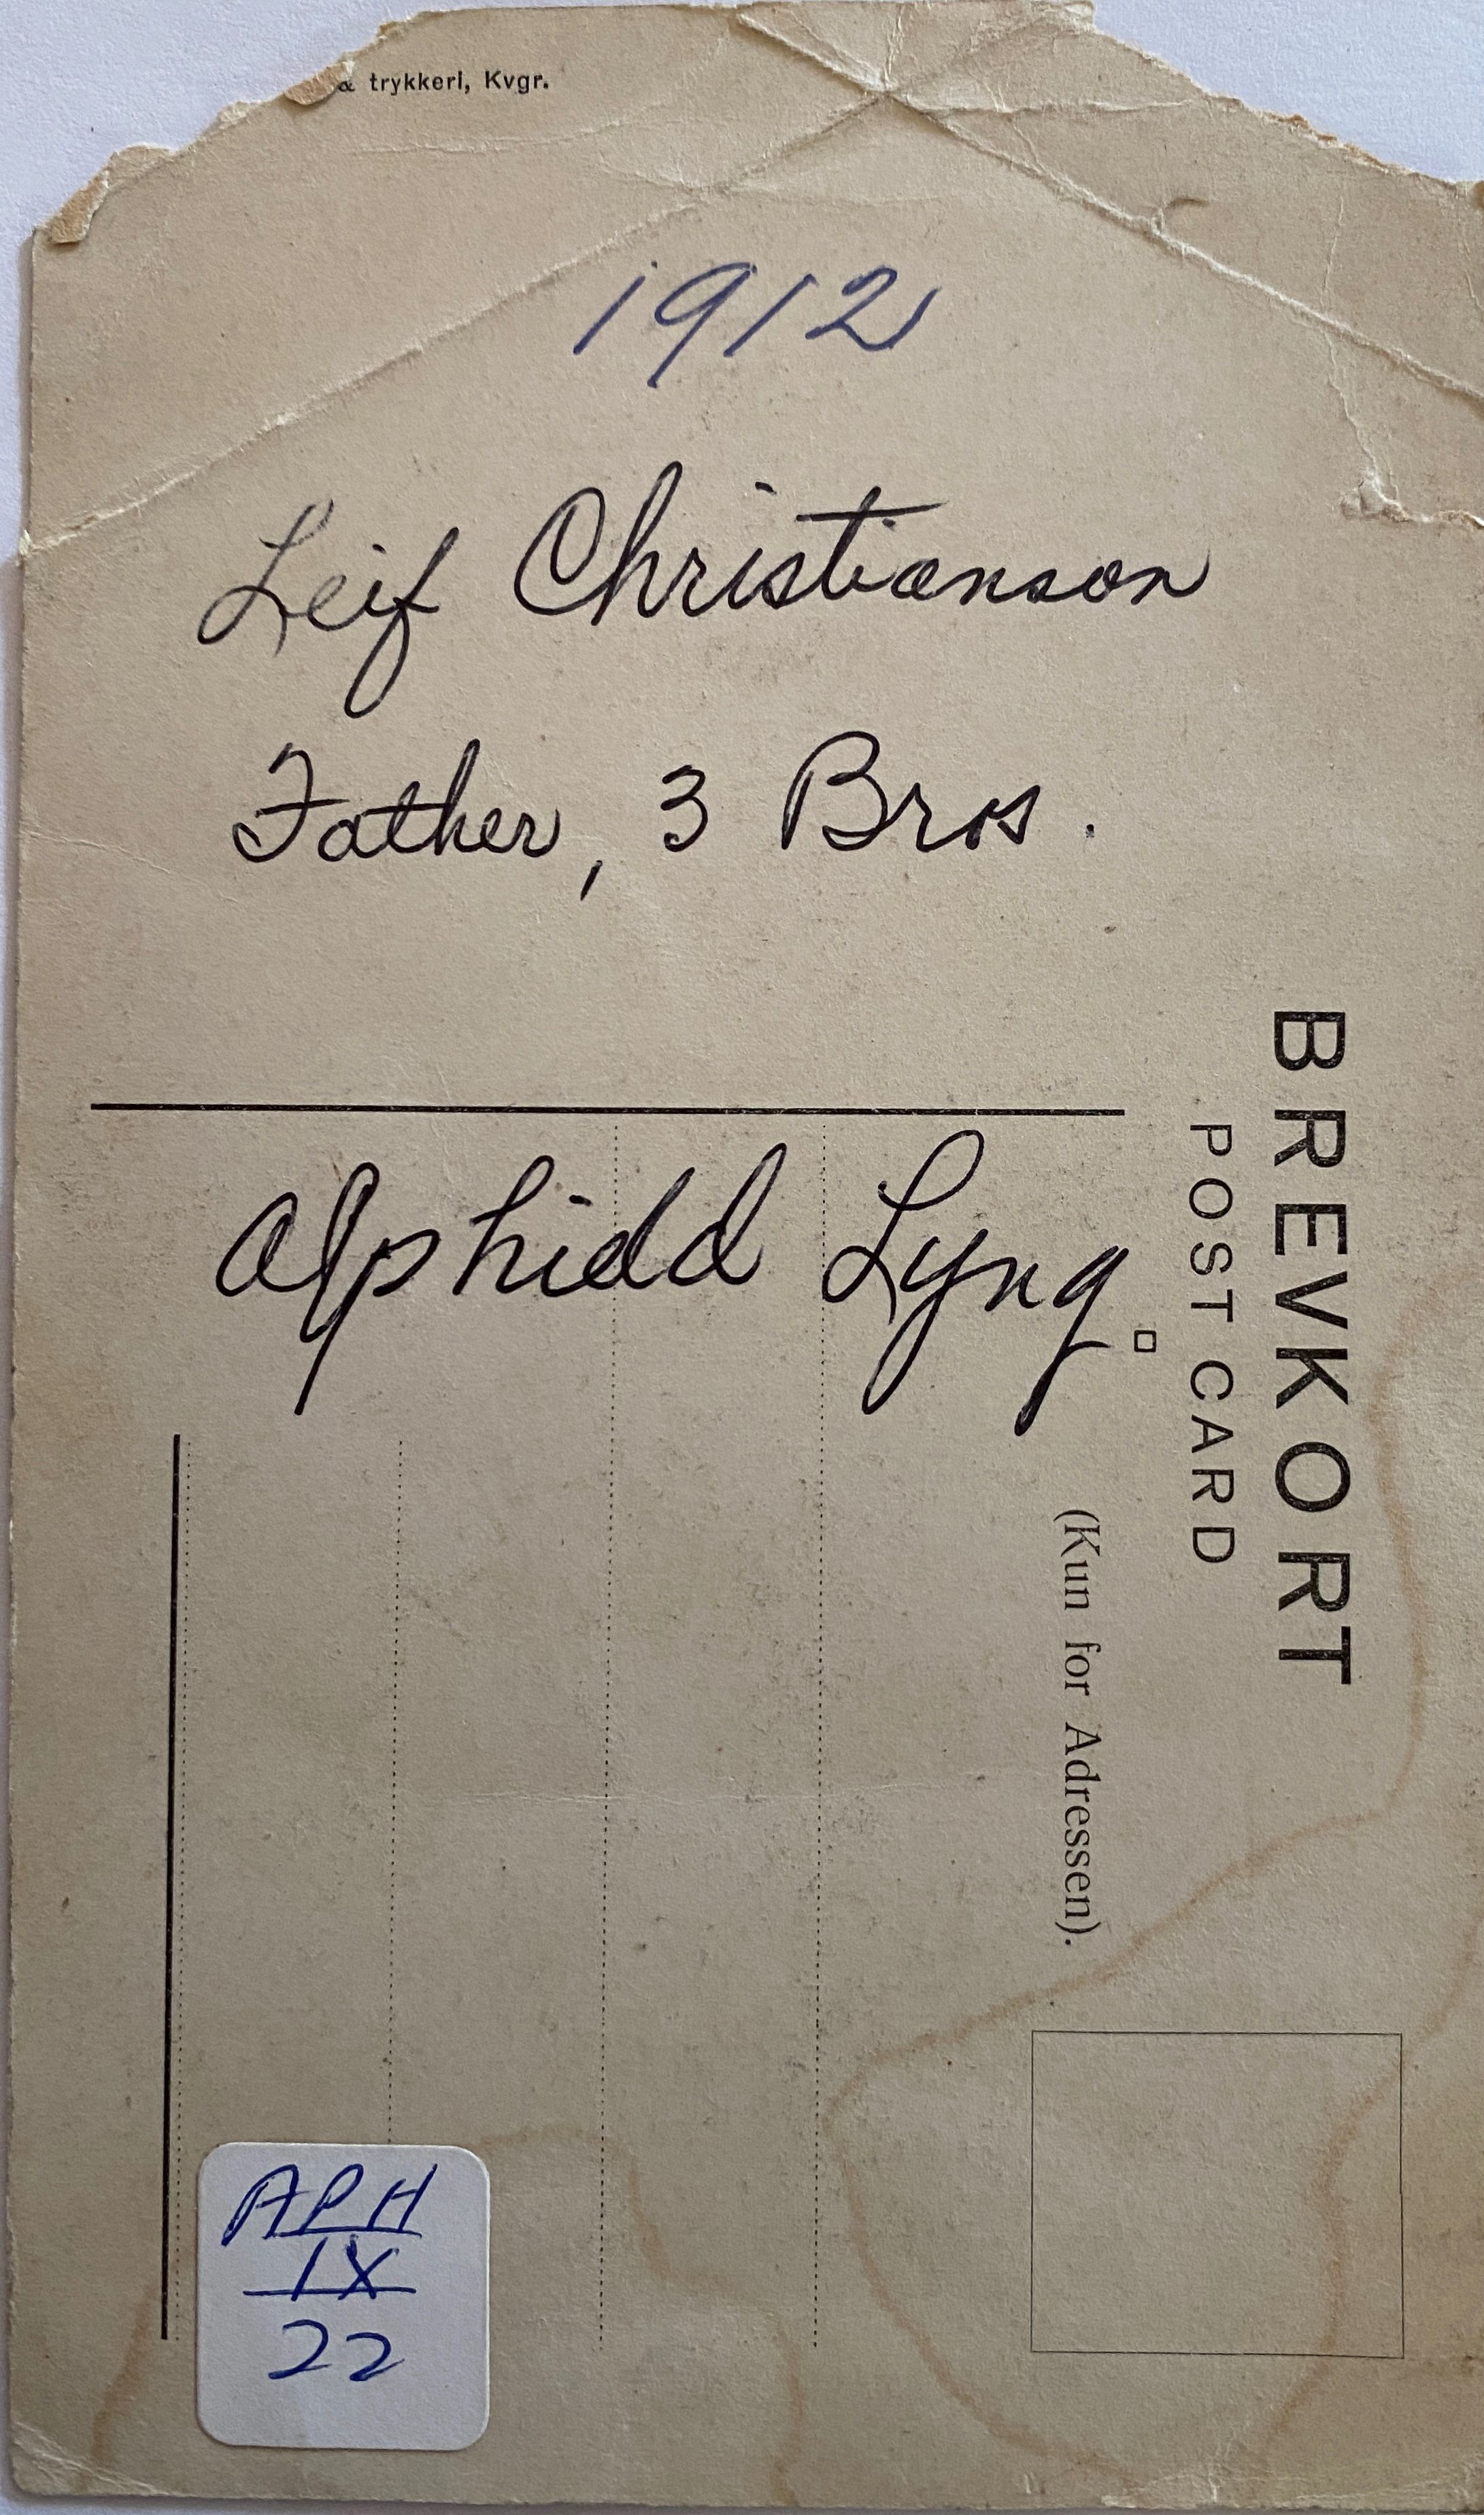 & trykkeri, Kvgr.
1912
Leif Christianson
Father, 3 Bros.
BREVKORT
POST CARD
(Kun for Adressen).
Alphidd Lyng
APH
IX
22